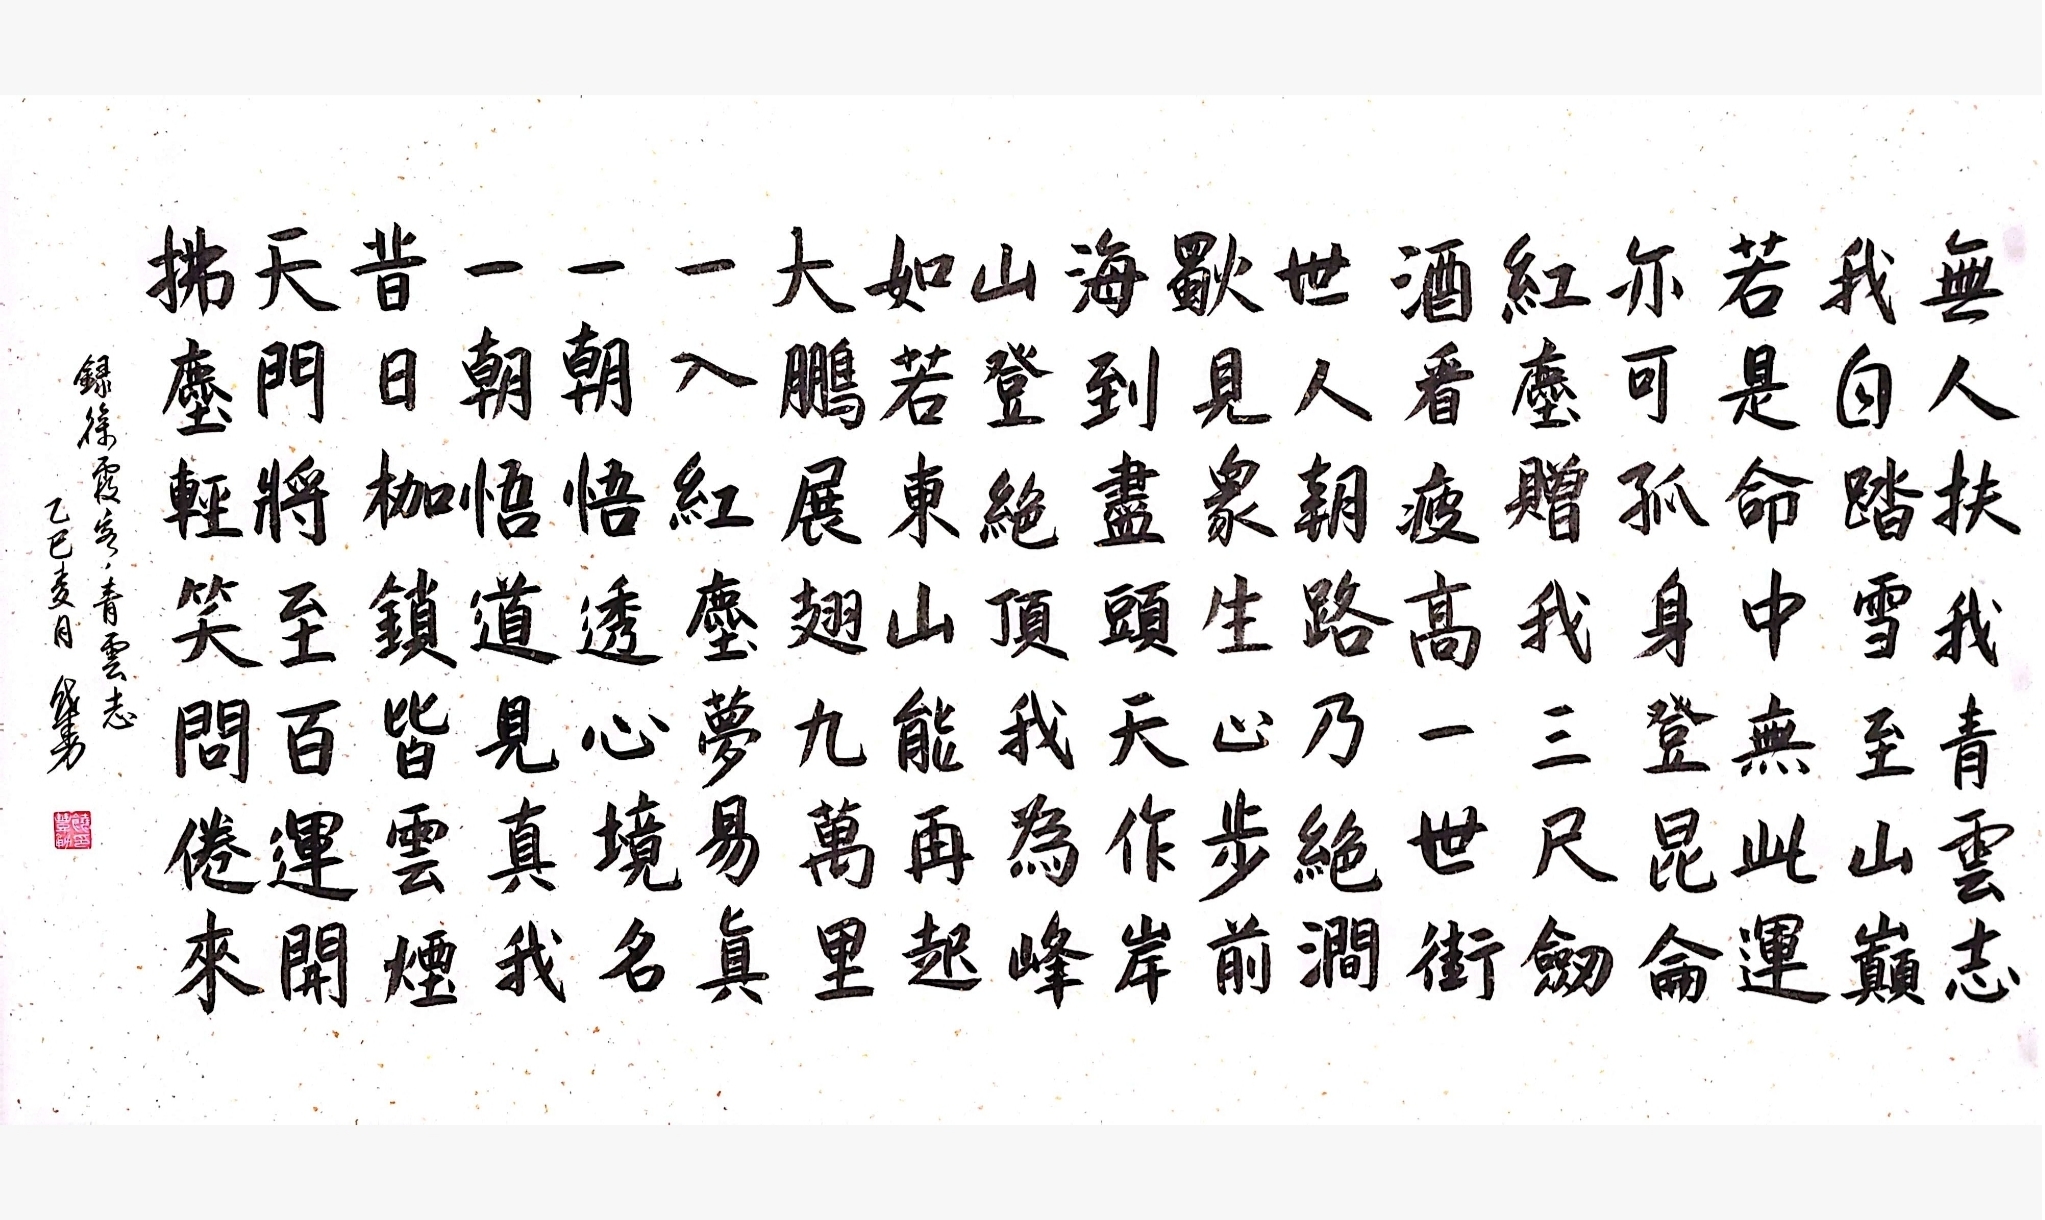 無人扶我青雲志
我自踏雪至山巔
若是命中無此運
亦可孤身登昆侖
紅塵贈我三尺劒
酒看疲高一世街
世人朝路乃絕澗
歇見眾生止步前
海到盡頭天作岸
山登絕頂我為峰
如若東山能再起
大鵬展翅九萬里
一入紅塵夢易真
一朝悟透心境名
一朝悟道見真我
昔日枷鎖皆雲煙
天門將至百運開
拂塵輕笑問倦來
錄徐霞客青雲志
乙巳麦月